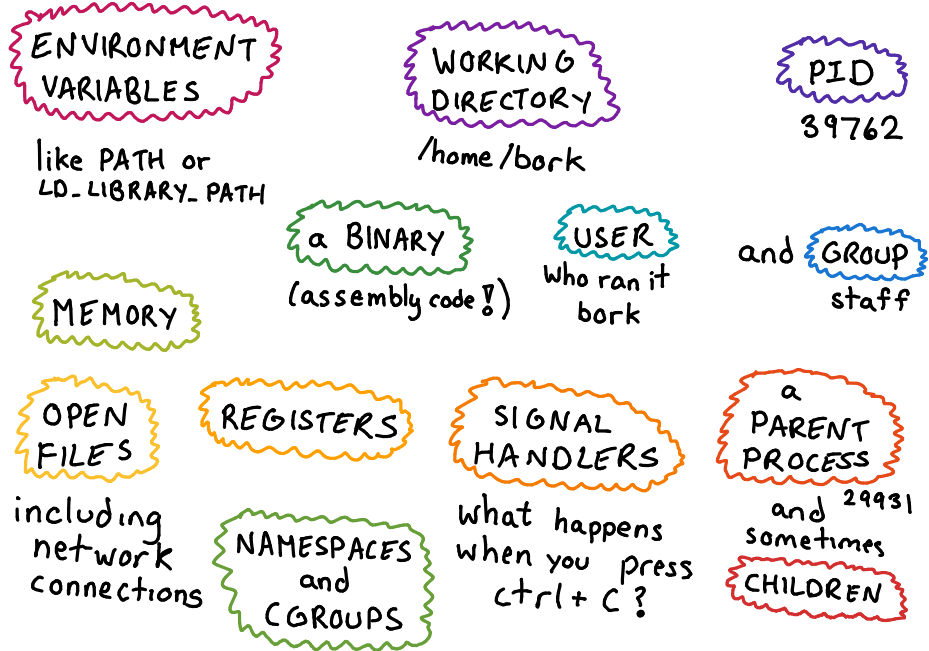 ENVIRONMENT
VARIABLES
like PATH or
LD_LIBRARY_PATH
WORKING
DIRECTORY
/home/bork
PID
39762
a BINARY
(assembly code!)
USER
who ran it
bork
and GROUP
staff
MEMORY
OPEN
FILES
including
network
connections
REGISTERS
NAMESPACES
and
CGROUPS
SIGNAL
HANDLERS
what happens
when you press
ctrl+C?
a
PARENT
PROCESS
29931
and
sometimes
CHILDREN